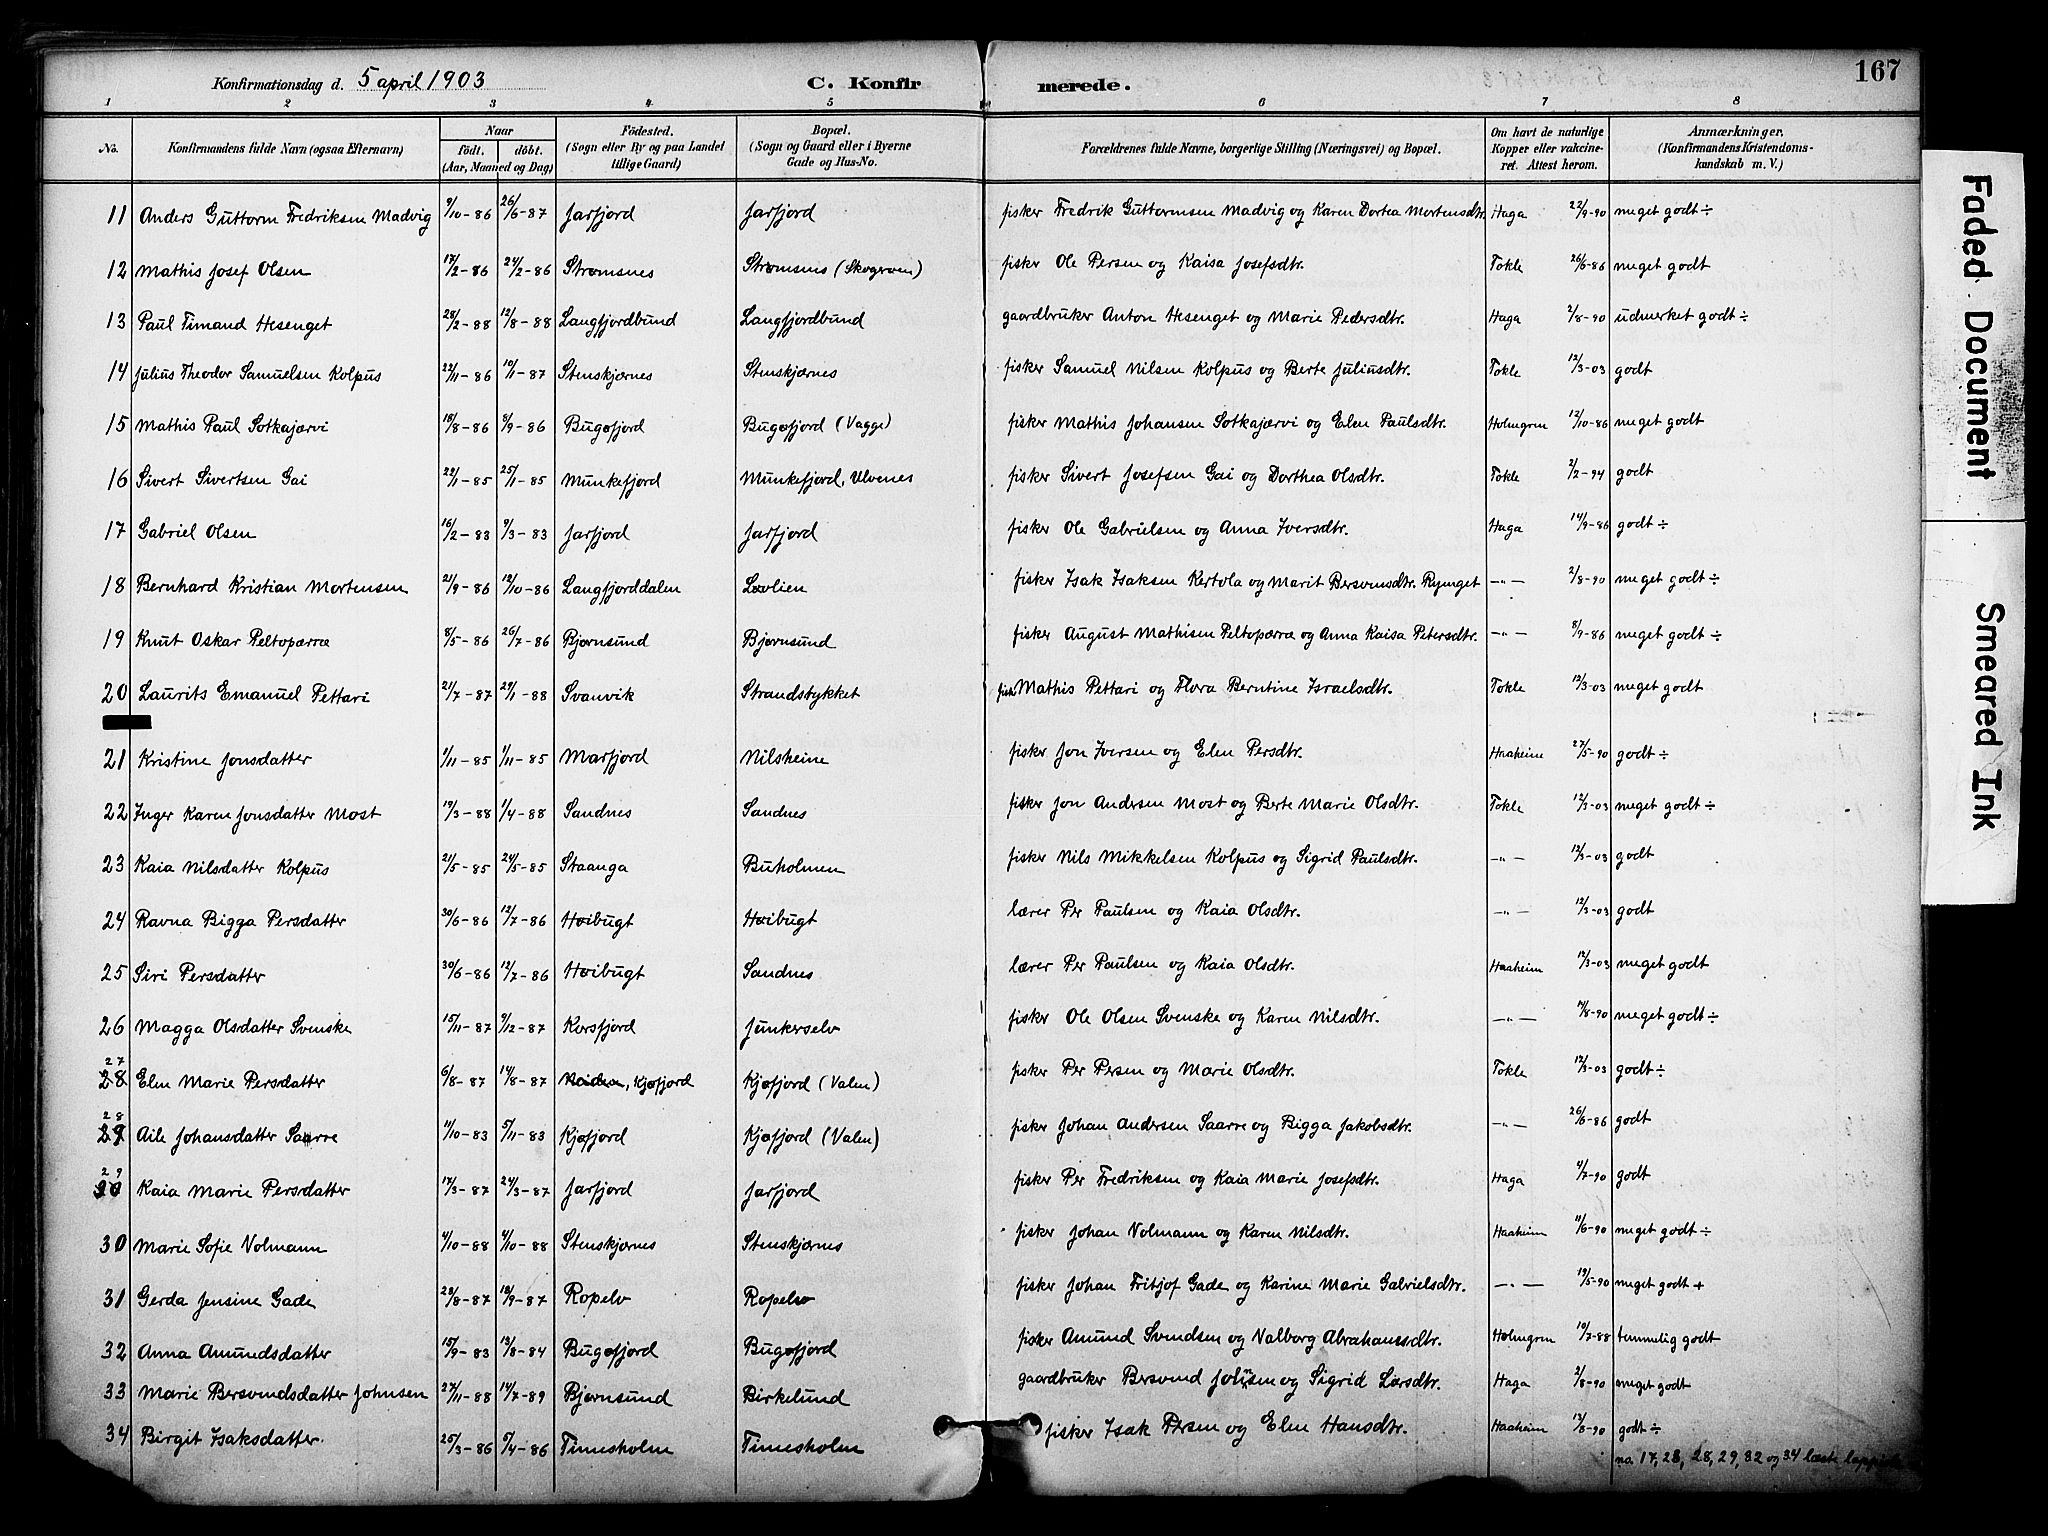 Konfirmationsdag d. 5 april 1903 C. Konfirmerede. 167
1 2 3 4 5 6 7 8
No. Konfirmandens fulde Navn (ogsaa Efternavn) Naar født. døbt. (Aar, Maaned og Dag) Födested. (Sogn eller By og paa Landet tillige Gaard) Bopæl. (Sogn og Gaard eller i Byerne Gade og Hus-No. Forældrenes fulde Navne, borgerlige Stilling (Næringsvei) og Bopæl. Om havt de naturlige Kopper eller vakcineret. Attest herom. Anmærkninger. (Konfirmandens Kristendomskundskab m. V.)
11 Anders Guttorm Fredriksen Madvig 9/10-86 26/6-87 Jarfjord Jarfjord fisker Fredrik Guttormsen Madvig og Karen Dortea Mortensdtr. Haga 22/9-90 meget godt ÷
12 Mathis Josef Olsen 17/2-86 24/2-86 Strømsnes Strømsnes (Skogrøen) fisker Ole Persen og Kaisa Josefsdtr. Tokle 26/6-86 meget godt
13 Paul Timand Hesenget 28/2-88 12/8-88 Langfjordbund Langfjordbund gaardbruker Anton Hesenget og Marie Pedersdtr. Haga 2/8-90 udmerket godt ÷
14 Julius Theodor Samuelsen Kolpus 22/11-86 10/1-87 Stenskjærnes Stenskjærnes fisker Samuel Nilsen Kolpus og Berte Juliusdtr. Tokle 12/3-03 godt
15 Mathis Paul Sotkajærvi 18/8-86 8/9-86 Bugøfjord Bugøfjord (Vagge) fisker Mathis Johansen Sotkajærvi og Elen Paulsdtr. Holmgren 12/10-86 meget godt
16 Sivert Sivertsen Gai 22/1-85 25/1-85 Munkefjord Munkefjord, Ulvenes fisker Sivert Josefsen Gai og Dorthea Olsdtr. Tokle 2/2-94 godt
17 Gabriel Olsen 16/2-83 9/3-83 Jarfjord Jarfjord fisker Ole Gabrielsen og Anna Iversdtr. Haga 14/9-86 godt ÷
18 Bernhard Kristian Mortensen 21/9-86 12/10-86 Langfjorddalen Løvlien fisker Isak Isaksen Kertola og Marit Bersvensdtr. Rynget —„— 2/8-90 meget godt ÷
19 Knut Oskar Peltopærra 8/5-86 26/7-86 Bjørnsund Bjørnsund fisker August Mathisen Peltopærra og Anna Kaisa Petersdtr. —„— 8/9-86 meget godt ÷
20 Laurits Emanuel Pettari 21/7-87 29/1-88 Svanvik Strandstykket fisk. Mathis Pettari og Flora Berntine Israelsdtr. Tokle 12/3-03 meget godt
21 Kristine Jonsdatter 1/11-85 1/11-85 Marfjord Nilsheine fisker Jon Iversen og Elen Persdtr. Haaheim 27/5-90 godt ÷
22 Inger Karen Jonsdatter Most 19/3-88 1/4-88 Sandnes Sandnes fisker Jon Andersen Most og Berte Marie Olsdtr. Tokle 12/3-03 meget godt ÷
23 Kaia Nilsdatter Kolpus 21/5-85 24/5-85 Staanga Buholmen fisker Nils Mikkelsen Kolpus og Sigrid Paulsdtr. —„— 12/3-03 godt
24 Ravna Bigga Persdatter 30/6-86 12/7-86 Høibugt Høibugt lærer Per Paulsen og Kaia Olsdtr. —„— 12/3-03 godt
25 Siri Persdatter 30/6-86 12/7-86 Høibugt Sandnes lærer Per Paulsen og Kaia Olsdtr. Haaheim 12/3-03 meget godt
26 Magga Olsdatter Svenske 15/11-87 9/12-87 Korsfjord Junkerselv fisker Ole Olsen Svenske og Karen Nilsdtr. —„— /8-90 meget godt ÷
27 28 Elen Marie Persdatter 6/8-87 14/8-87 Neiden, Kjøfjord Kjøfjord (Valen) fisker Per Persen og Marie Olsdtr. Tokle 12/3-03 godt ÷
28 29 Aile Johansdatter Saarre 11/10-83 5/11-83 Kjøfjord Kjøfjord (Valen) fisker Johan Andersen Saarre og Bigga Jakobsdtr. —„— 26/6-86 godt
29 30 Kaia Marie Persdatter 17/3-87 24/3-87 Jarfjord Jarfjord fisker Per Fredriksen og Kaia Marie Josefsdtr. Haga 4/7-90 godt
30 Marie Sofie Volmann 4/10-88 4/10-88 Stenskjærnes Stenskjærnes fisker Johan Volmann og Karen Nilsdtr. Haaheim 11/6-90 meget godt ÷
31 Gerda Jensine Gade 23/8-87 18/9-87 Ropelv Ropelv fisker Johan Fritjof Gade og Karine Marie Gabrielsdtr. —„— 19/5-90 meget godt +
32 Anna Amundsdatter 15/9-83 13/8-84 Bugøfjord Bugøfjord fisker Amund Svendsen og Valborg Abrahamsdtr. Holmgren 19/7-88 temmelig godt
33 Marie Bersvendsdatter Johnsen 27/11-88 14/7-89 Bjørnsund Birkelund gaardbruker Bersvend Johnsen og Sigrid Larsdtr. Haga 2/8-90 meget godt
34 Birgit Isaksdatter 25/3-86 5/4-86 Timesholm Timesholm fisker Isak Persen og Elen Hansdtr. Haaheim 13/8-90 godt ÷
no. 17, 23, 28, 29, 32 og 34 læste
Faded Document
Smeared Ink